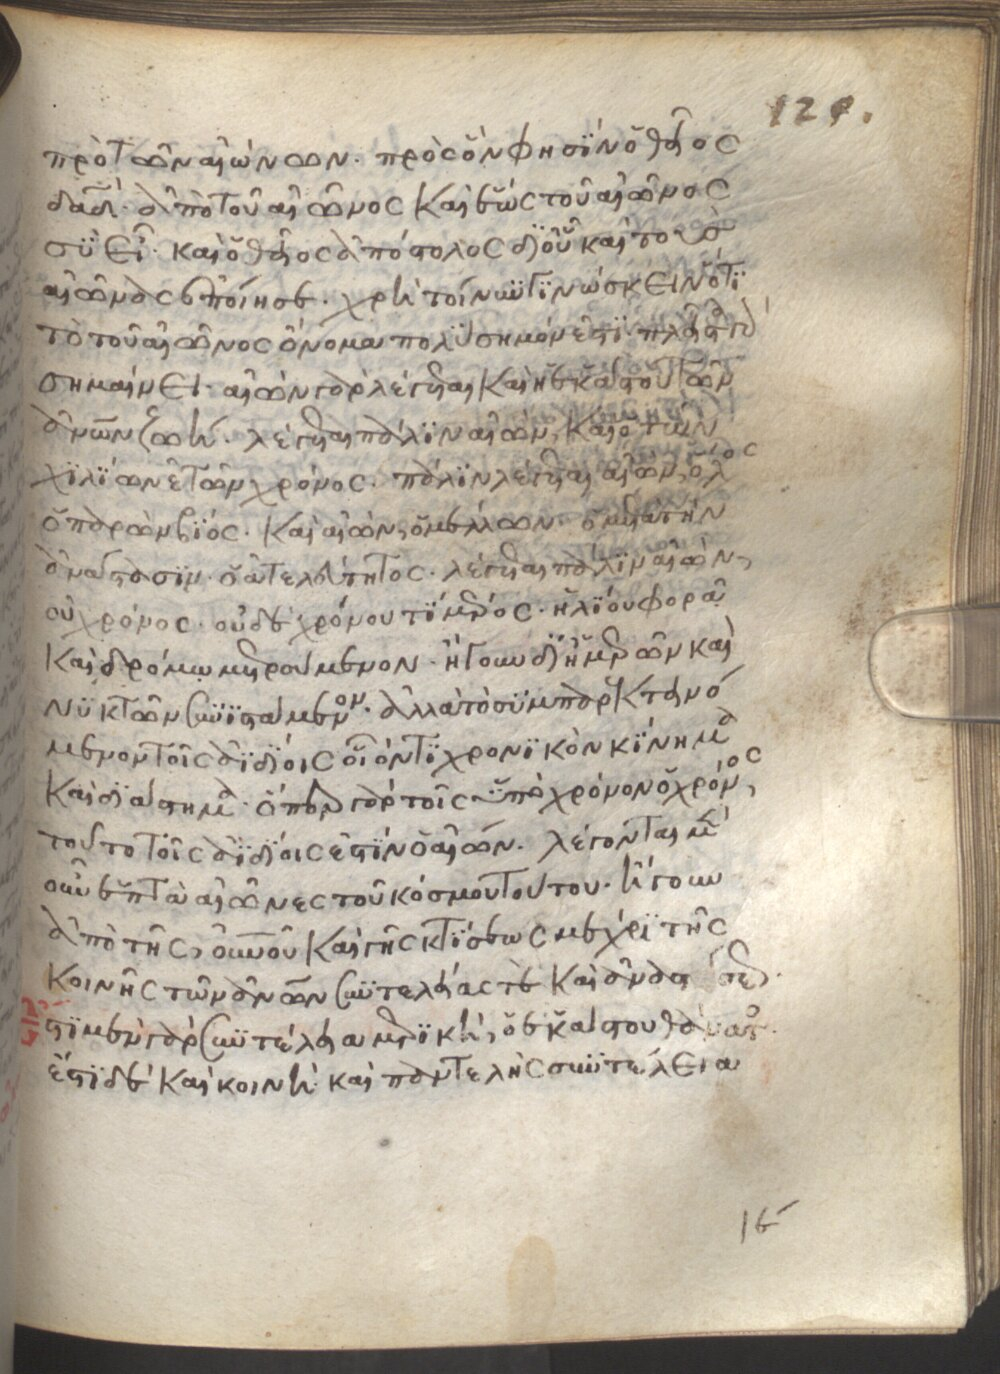 121.
πρὸ τῶν αἰώνων. πρὸς ὅν φησιν ὁ θεῖος
δαδ. ἀπὸ τοῦ αἰῶνος καὶ ἕως τοῦ αἰῶνος
σὺ εἶ. καὶ ὁ θεῖος ἀπόστολος δι οὗ καὶ τοὺς
αἰῶνας ἐποίησε. χρὴ τοίνυν γινώσκειν ὅτι
τὸ τοῦ αἰῶνος ὄνομα πολύσημόν ἐστι. πλεῖστα
σημαίνει. αἰὼν γὰρ λέγεται καὶ ἡ ἑκάστου τῶν
ἀνων ζωή. λέγεται πάλιν αἰών, καὶ ὁ τῶν
χιλίων ἐτῶν χρόνος. πάλιν λέγεται αἰών, ὅλος
ὁ παρὼν βίος. καὶ αἰών, ὁ μέλλων. ὁ μετὰ τὴν
ἀνάστασιν. ὁ ἀτελεύτητος. λέγεται πάλιν αἰών,
οὐ χρόνος. οὐδὲ χρόνου τι μέρος. ἡλίου φορᾶ
καὶ δρόμω μετρούμενον. ἤγουν δι ἡμερῶν καὶ
νυκτῶν συνιστάμενον. ἀλλὰ τὸ συμπαρεκτεινό
μενον τοῖς ἀϊδίοις οἷόν τι χρονικὸν κίνημα
καὶ διάστημα. ὅπερ γὰρ τοῖς ὑπὸ χρόνον ὁ χρόνος,
τοῦτο τοῖς ἀϊδίοις ἐστὶν ὁ αἰών. λέγονται μὲν
οὖν ἑπτὰ αἰῶνες τοῦ κόσμου τούτου. ἤγουν
ἀπὸ τῆς, οὐνοῦ καὶ γῆς κτίσεως μέχρι τῆς
κοινῆς τῶν ἀνων συντελείας τε καὶ ἀναστάσεως.
ἔστι μὲν γὰρ συντέλεια μερικὴ, ὁ ἑκάστου θάνατος.
ἔστι δὲ καὶ κοινὴ καὶ παντελὴς συντέλεια
ις